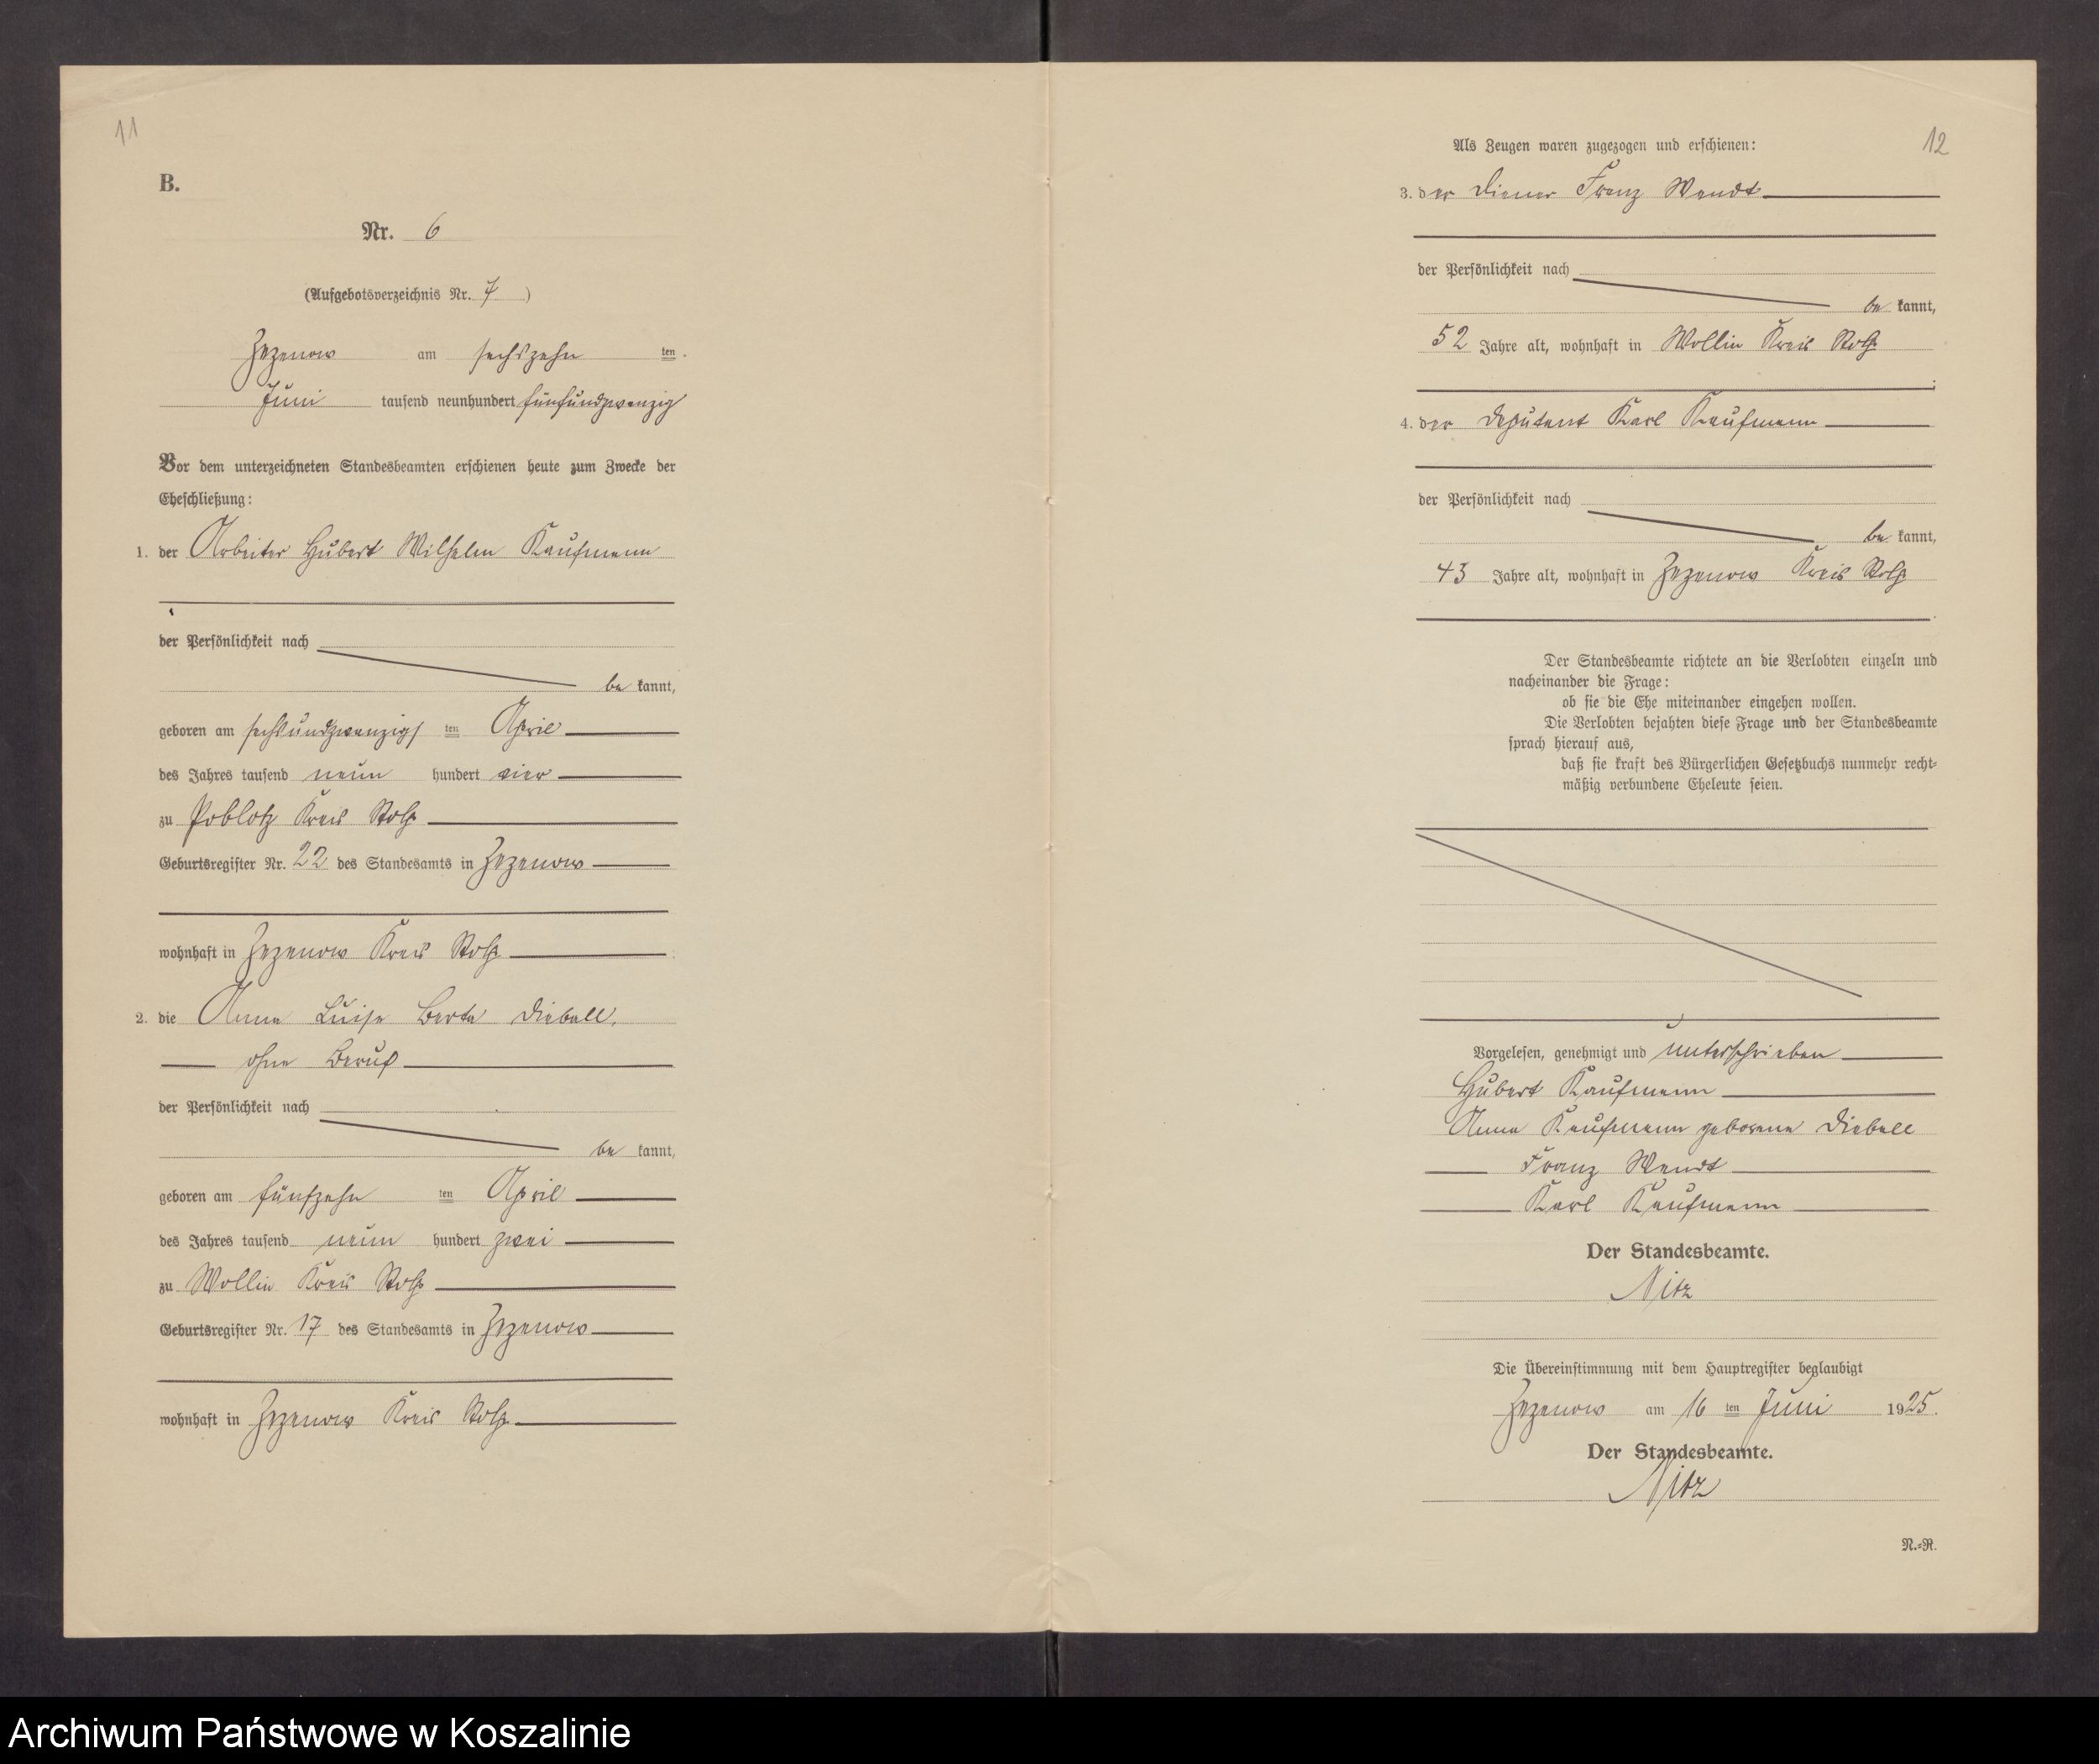 11
B.
Nr. 6
(Aufgebotsverzeichnis Nr. 7)
Zezenow am sechszehn ten
Juni tausend neunhundert fünfundzwanzig
Vor dem unterzeichneten Standesbeamten erschienen heute zum Zwecke der
Eheschließung:
1. der Arbeiter Hubert Wilhelm Kaufmann
der Persönlichkeit nach
be kannt,
geboren am sechsundzwanzigs ten April
des Jahres tausend neun hundert vier
zu Poblotz Kreis Stolp
Geburtsregister Nr. 22 des Standesamts in Zezenow
wohnhaft in Zezenow Kreis Stolp
2. die Anna Luise Berta Dieball,
ohne Beruf
der Persönlichkeit nach
be kannt,
geboren am fünfzehn ten April
des Jahres tausend neun hundert zwei
zu Wollin Kreis Stolp
Geburtsregister Nr. 17 des Standesamts in Zezenow
wohnhaft in Zezenow Kreis Stolp
12
Als Zeugen waren zugezogen und erschienen:
3. der Diener Franz Wendt
der Persönlichkeit nach
be kannt,
52 Jahre alt, wohnhaft in Wollin Kreis Stolp
4. der Deputant Karl Kaufmann
der Persönlichkeit nach
be kannt,
43 Jahre alt, wohnhaft in Zezenow Kreis Stolp
Der Standesbeamte richtete an die Verlobten einzeln und
nacheinander die Frage:
ob sie die Ehe miteinander eingehen wollen.
Die Verlobten bejahten diese Frage und der Standesbeamte
sprach hierauf aus,
daß sie kraft des Bürgerlichen Gesetzbuchs nunmehr recht-
mäßig verbundene Eheleute seien.
Vorgelesen, genehmigt und unterschrieben
Hubert Kaufmann
Anna Kaufmann geborene Dieball
Franz Wendt
Karl Kaufmann
Der Standesbeamte.
Nitz
Die Übereinstimmung mit dem Hauptregister beglaubigt
Zezenow am 16 ten Juni 1925.
Der Standesbeamte.
Nitz
N.-R.
Archiwum Państwowe w Koszalinie